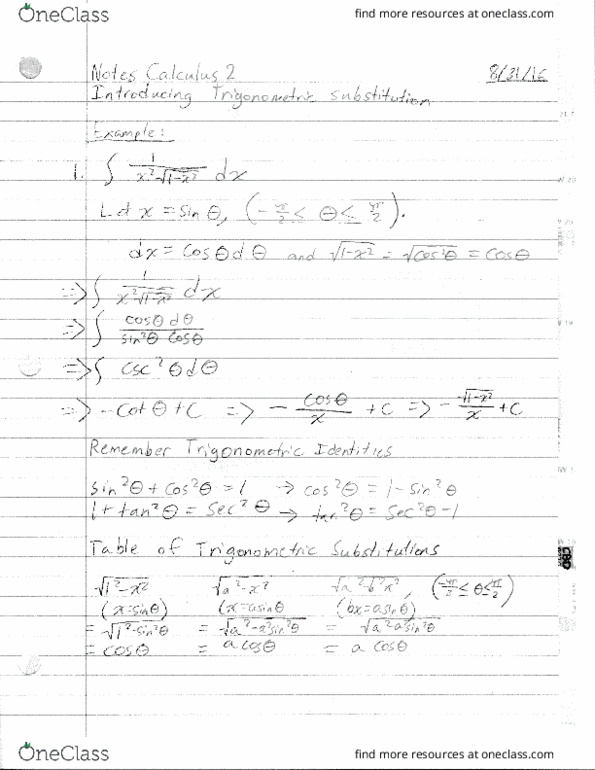 OneClass
find more resources at oneclass.com
Notes Calculus 2 8/31/16
Introducing Trigonometric Substitution
Example:
1. ∫ 1/(x²√(1-x²)) dx
Let x = sin θ, (-π/2 ≤ θ ≤ π/2).
dx = cos θ d θ and √(1-x²) = √(cos²θ) = cos θ
=> ∫ 1/(x²√(1-x²)) dx
=> ∫ cosθ dθ / sin²θ cosθ
=> ∫ csc² θ d θ
=> -cot θ + C => - cosθ/x + C => - √(1-x²)/x + C
Remember Trigonometric Identities
sin²θ + cos²θ = 1 → cos²θ = 1 - sin²θ
1 + tan²θ = sec²θ → tan²θ = sec²θ - 1
Table of Trigonometric Substitutions
√(1²-x²) √(a²-x²) √(a²-b²x²), (-π/2 ≤ θ ≤ π/2)
(x=sinθ) (x=asinθ (bx=asinθ)
= √(1²-sin²θ) = √(a²-a²sin²θ) = √(a²-a²sin²θ)
= cosθ = a cosθ = a cosθ
OneClass
find more resources at oneclass.com